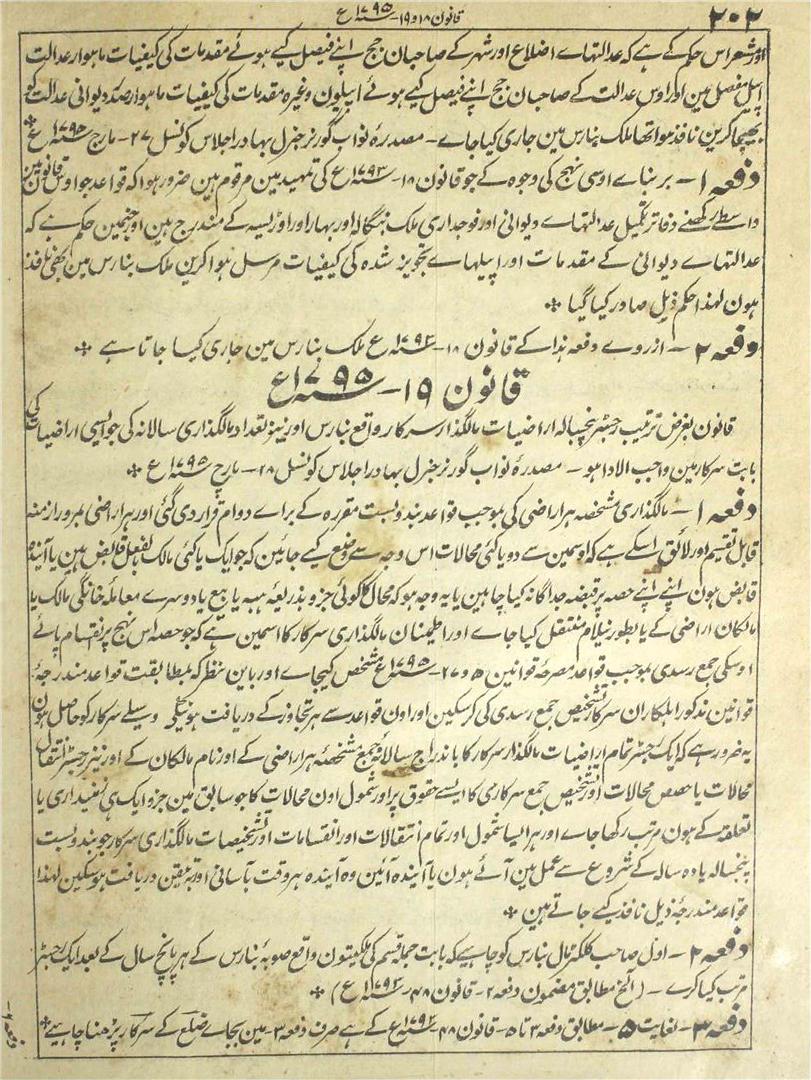 قانون ۱۸ و ۱۹ - سنہ ۱۷۹۵ ع
۲۰۲
اور مشعر اس حکم کے ہے کہ عدالتہاے اضلاع اور شہر کے صاحبان جج اپنے فیصل کیے ہوئے مقدمات کی کیفیات ماہوار عدالت
اپیل مفصل مین اور اوس عدالت کے صاحبان جج اپنے فیصل کیے ہوئے اپیلون وغیرہ مقدمات کی کیفیات ماہوار صدر دیوانی عدالت کو
بھیجا کرین نافذ ہوا تھا ملک بنارس مین جاری کیا جاے - مصدرہ نواب گورنر جنرل بہادر اجلاس کونسل ۲۷ - مارچ سنہ ۱۷۹۵ ع
دفعہ ۱ - بر بناے اوسی نہج کی وجوہ کے جو قانون ۱۸ - سنہ ۱۷۹۳ ع کی تمہید مین مرقوم ہین ضرور ہوا کہ قواعد جو اوس قانون مین
واسطے رکھنے دفاتر تکمیل عدالتہاے دیوانی اور فوجداری ملک بنگالہ اور بہار اور اوڑیسہ کے مندرج ہین اور جنمین حکم ہے کہ
عدالتہاے دیوانی کے مقدمات اور اپیلہاے تجویز شدہ کی کیفیات مرسل ہوا کرین ملک بنارس مین بھی نافذ
ہون لہذا حکم ذیل صادر کیا گیا ✤
دفعہ ۲ - ازروے دفعہ ہذا کے قانون ۱۸ - سنہ ۱۷۹۳ ع ملک بنارس مین جاری کیا جاتا ہے ✤
قانون ۱۹ - سنہ ۱۷۹۵ ع
قانون بغرض ترتیب رجسٹر پنجسالہ اراضیات مالگذار سرکار واقع بنارس اور نیز تعداد مالگذاری سالانہ کی جو ایسی اراضیات کی
بابت سرکار مین واجب الادا ہو - مصدرہ نواب گورنر جنرل بہادر اجلاس کونسل ۲۸ - مارچ سنہ ۱۷۹۵ ع ✤
دفعہ ۱ - مالگذاری مشخصہ ہر اراضی کی بموجب قواعد بندوبست مقررہ کے براے دوام قرار دی گئی اور ہر اراضی بمرور ازمنہ
قابل تقسیم اور لائق اسکے ہے کہ اوسمین سے دو یا کئی محالات اس وجہ سے وضع کیے جائین کہ جو ایک یا کئی مالک بالفعل قابض ہین یا آیندہ
قابض ہون اپنے اپنے حصہ پر قبضہ جداگانہ کیا چاہین یا یہ وجہ ہو کہ محال کا کوئی جزو بذریعہ ہبہ یا بیع یا دوسرے معاملہ خانگی مالک یا
مالکان اراضی کے یا بطور نیلام منتقل کیا جاے اور اطمینان مالگذاری سرکار کا اسمین ہے کہ جو حصہ اس نہج پر انقسام پائے
اوسکی جمع رسدی بموجب قواعد مصرحہ قوانین ۵ و ۲۷ - سنہ ۱۷۹۵ ع مشخص کیجاے اور باین نظر کہ بمطابقت قواعد مندرجہ
قوانین مذکور اہلکاران سرکار تشخیص جمع رسدی کی کرسکین اور اون قواعد سے ہر تجاوز کے دریافت ہونیکے وسیلے سرکار کو حاصل ہون
یہ ضرور ہے کہ ایک رجسٹر تمام اراضیات مالگذار سرکار کا باندراج سالانہ جمع مشخصہ ہر اراضی کے اور نام مالکان کے اور نیز رجسٹر انتقال
محالات یا حصص محالات اور تشخیص جمع سرکاری کا ایسے حقوق پر اور شمول اون محالات کا جو سابق مین جزو ایک ہی زمینداری یا
تعلقہ کے ہون مرتب رکھا جاے اور ہر ایسا شمول اور تمام انتقالات اور انقسامات اور تشخیصات مالگذاری سرکار جو بندوبست
پنجسالہ یا دہ سالہ کے شروع سے عمل مین آئے ہون یا آیندہ آئین وہ آیندہ ہر وقت بآسانی اور بتیقن دریافت ہوسکین لہذا
قواعد مندرجہ ذیل نافذ کیے جاتے ہین ✤
دفعہ ۲ - اول صاحب کلکٹر مال بنارس کو چاہیے کہ بابت جملہ قسم کی ملکیتون واقع صوبہ بنارس کے ہر پانچ سال کے بعد ایک رجسٹر
مرتب کیا کرے - ( الخ مطابق مضمون دفعہ ۲ - قانون ۴۸ - سنہ ۱۷۹۳ ع ) ✤
دفعہ ۳ - لغایت ۵ - مطابق دفعہ ۳ تا ۵ - قانون ۴۸ - سنہ ۱۷۹۳ ع کے ہے صرف دفعہ ۳ - مین بجاے ضلع کے سرکار پڑھنا چاہیے ✤
دفعہ ۶ -